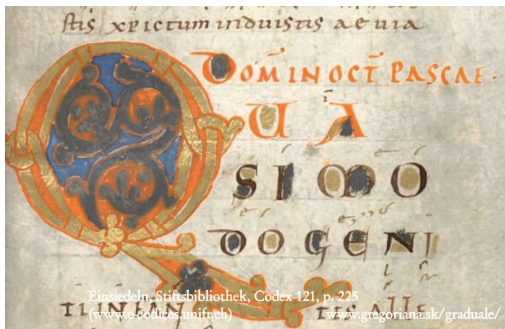 stis xpictum induistis aeuia
Dom in oct pascae.
QUA
SIMO
DOGENI
Einsiedeln, Stiftsbibliothek, Codex 121, p. 225
(www.e-codices.unifr.ch)
www.gregoriana.sk/graduale/